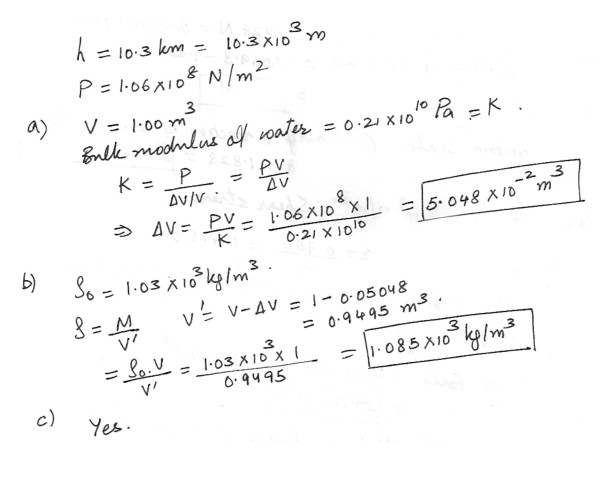 h = 10.3 km = 10.3 × 10³ m
P = 1.06 × 10⁸ N/m²
a) V = 1.00 m³
Bulk modulus of water = 0.21 × 10¹⁰ Pa = K.
K = P / (ΔV/V) = PV / ΔV
⇒ ΔV = PV / K = (1.06 × 10⁸ × 1) / (0.21 × 10¹⁰) = 5.048 × 10⁻² m³
b) ρ₀ = 1.03 × 10³ kg/m³.
ρ = M / V' V' = V - ΔV = 1 - 0.05048
= 0.9495 m³.
= ρ₀.V / V' = (1.03 × 10³ × 1) / 0.9495 = 1.085 × 10³ kg/m³
c) Yes.